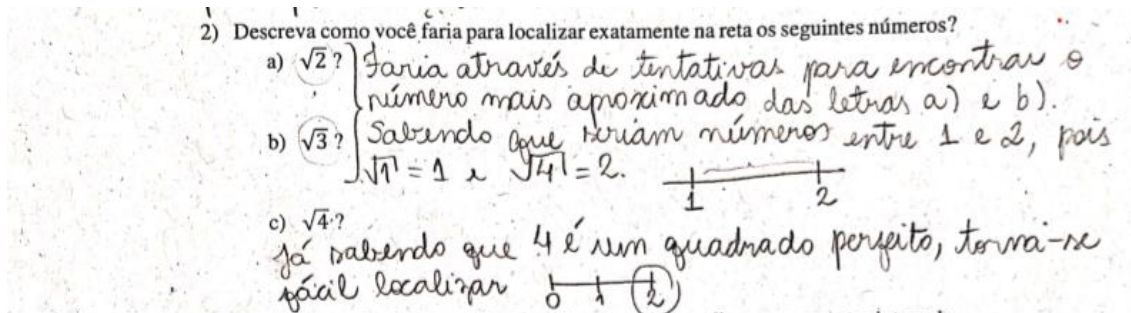 2) Descreva como você faria para localizar exatamente na reta os seguintes números?
a) √2 ? Faria através de tentativas para encontrar o
número mais aproximado das letras a) e b).
b) √3 ? Sabendo que seriam números entre 1 e 2, pois
√1 = 1 e √4 = 2.
1 2
c) √4 ?
Já sabendo que 4 é um quadrado perfeito, torna-se
fácil localizar 0 1 2